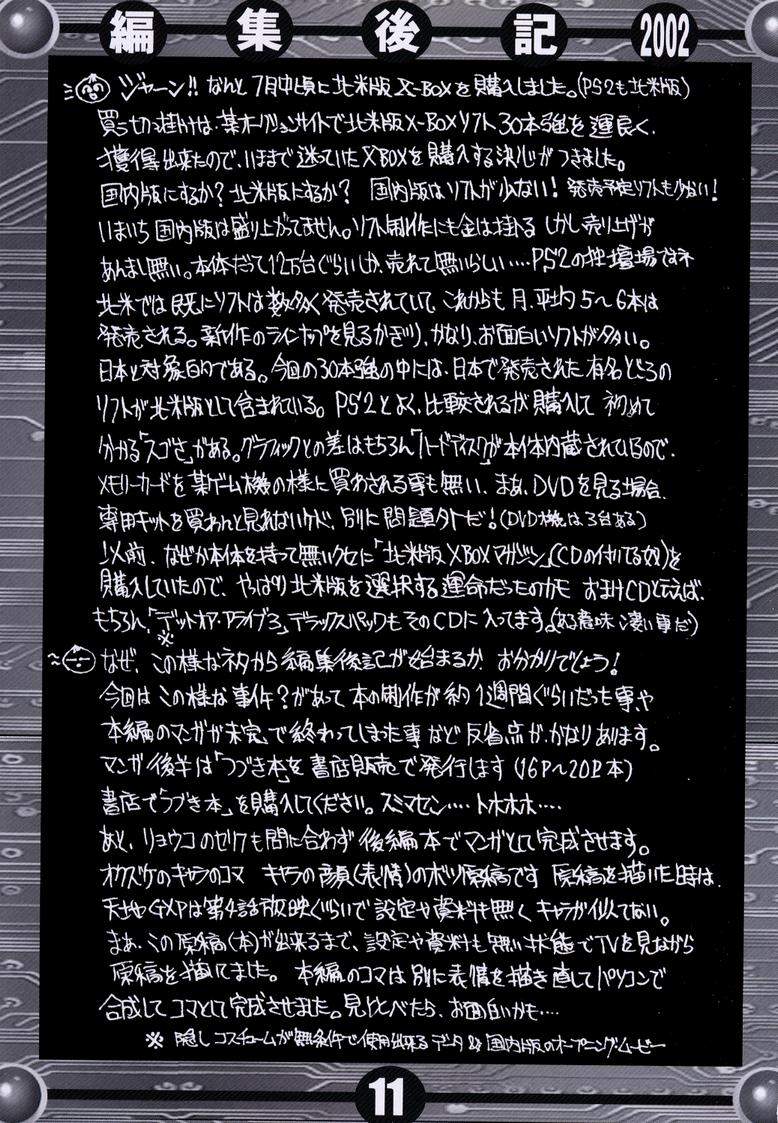 編集後記 2002
ジャーン!! なんと 7月中頃に北米版 X-BOXを購入しました。(PS2も北米版)
買う切っ掛けは、某オークションサイトで北米版X-BOXソフト30本強を運良く、
獲得出来たので、いままで迷っていたXBOXを購入する決心がつきました。
国内版にするか? 北米版にするか? 国内版はソフトが少ない! 発売予定ソフトも少ない!
いまいち 国内版は盛り上がってません。ソフト制作にも金は掛る しかし売り上げが
あんまし無い。本体だって12万台ぐらいしか、売れて無いらしい‥‥PS2の独壇場ですネ
北米では既にソフトは数多く発売されていて、これからも月、平均5〜6本は
発売される。新作のラインナップを見るかぎり、かなり、お面白いソフトが多い。
日本と対象的である。今回の30本強の中には、日本で発売された有名どころの
ソフトが北米版として含まれている。PS2とよく、比較されるが購入して 初めて
分かる「スゴさ」がある。グラフィックとの差はもちろん「ハードディスク」が本体内蔵されているので、
メモリーカードを某ゲーム機の様に買わされる事も無い、まあ、DVDを見る場合、
専用キットを買わんと見れないケド、別に問題外だ!(DVD機は3台ある)
以前、なぜか本体を持って無いクセに「北米版XBOXマガジン」(CDの付いてる奴)を
購入していたので、やっぱり北米版を選択する運命だったのかも おまけCDと云えば、
もちろん、「デットオア・アライブ3」デラックスパックもそのCDに入ってます。(ある意味 凄い事だ)
※
なぜ、この様なネタから編集後記が始まるか お分かりでしょう!
今回はこの様な事件?があって本の制作が約1週間ぐらいだった事や
本編のマンガが未完で終わってしまった事など反省点が、かなりあります。
マンガ後半は「つづき本」を書店販売で発行します(16P〜20P本)
書店で「つづき本」を購入してください。スミマセン‥‥トホホホ‥‥
あと、リョウコのゼクも間に合わず後編本でマンガとして完成させます。
オクズケのキャラのコマ キャラの顔(表情)のボツ原稿です 原稿を描いた時は、
天地GXPは第4話放映ぐらいで設定や資料も無く キャラが似てない。
まあ、この原稿(本)が出来るまで、設定や資料も無い状態でTVを見ながら
原稿を描いてました。 本編のコマは別に表情を描き直してパソコンで
合成してコマとして完成させました。見比べたら、お面白いかも‥‥
※ 隠しコスチュームが無条件で使用出来るデータ&国内版のオープニング・ムービー
11